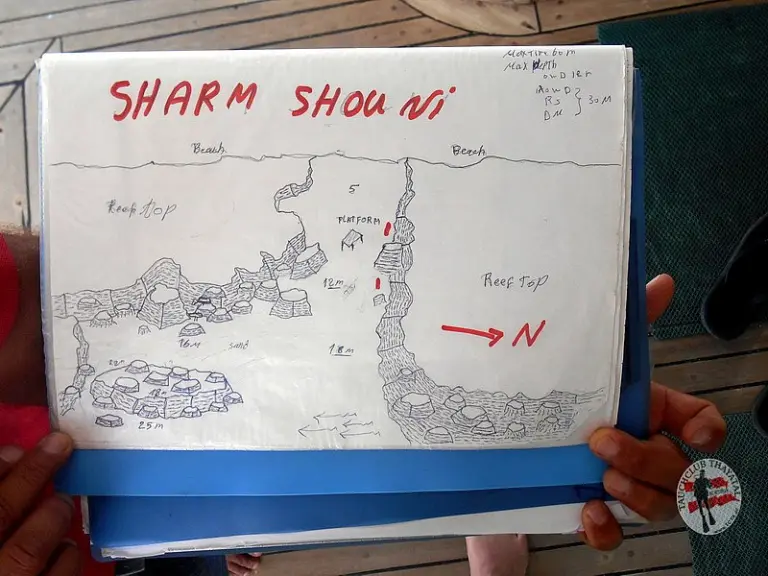 SHARM SHOUNi
Max time 60m
Max Depth
OWD 18m
AOWD
RS } 30M
DM
Beach
Beach
Reef top
5
PLATFORM
12m
Reef Top
N
16M
Sand
18m
25m
TAUCHCLUB THAYATAL